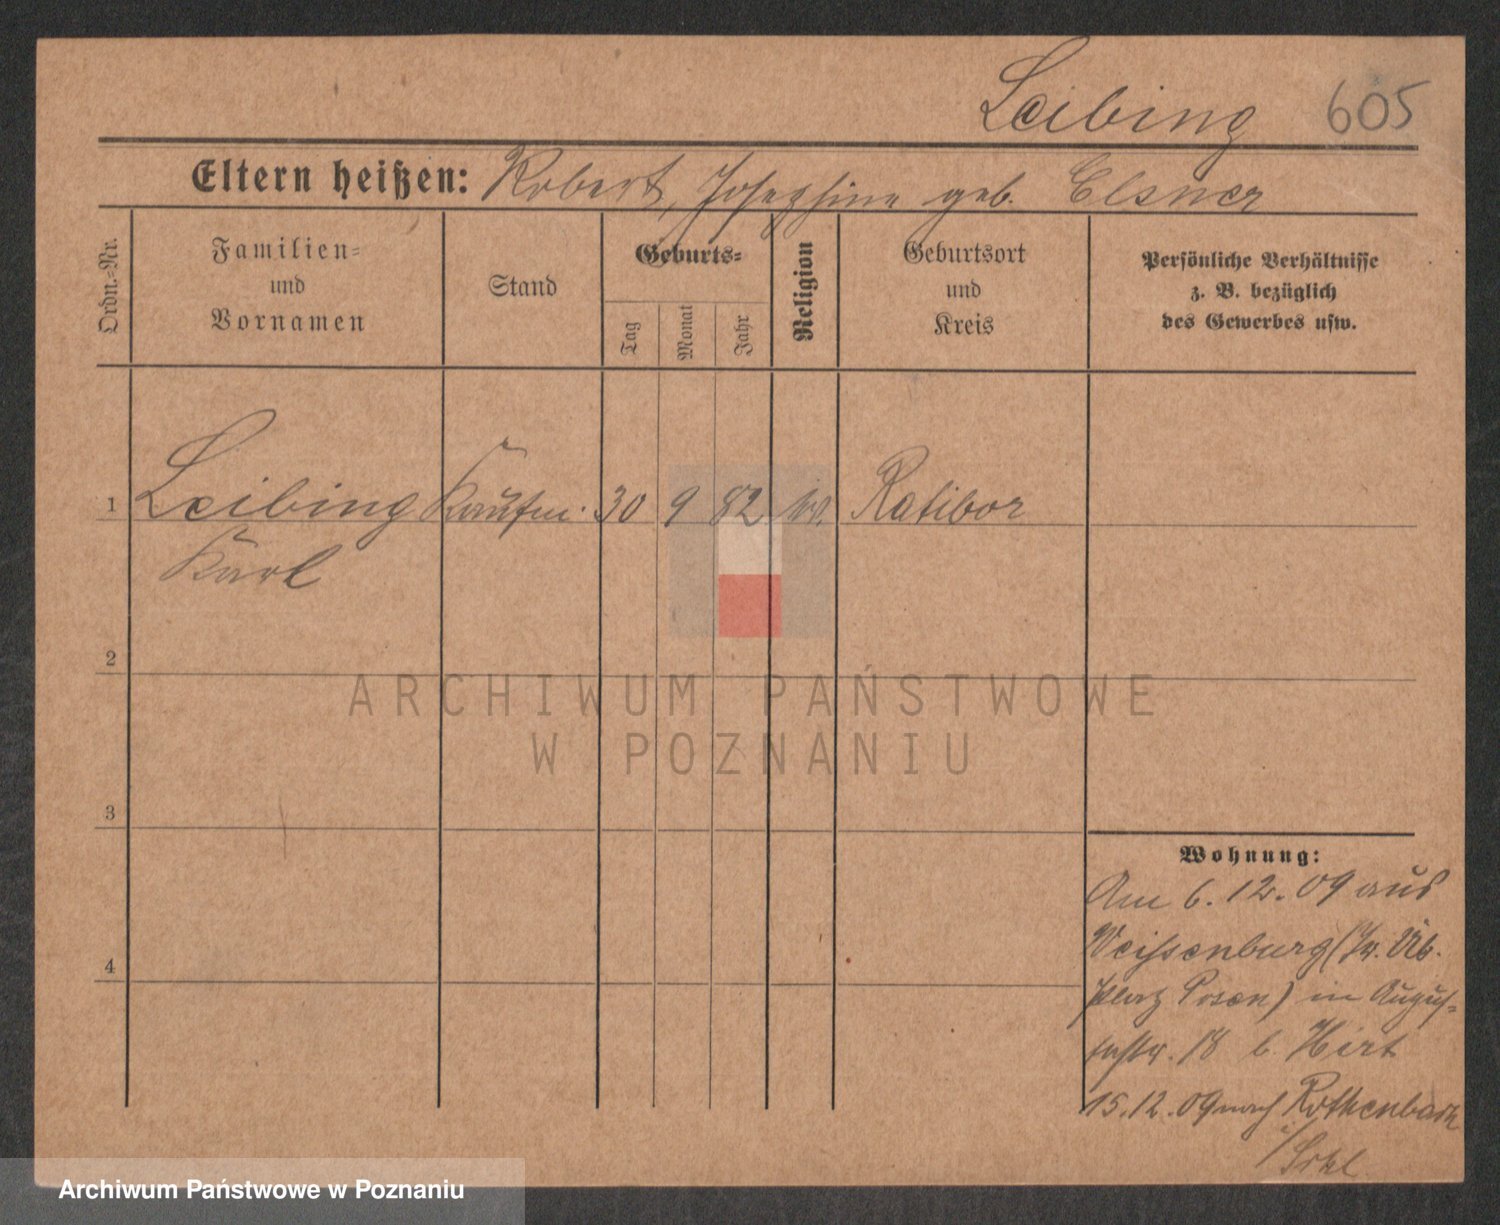 Leibing 605
Eltern heißen: Robert, Josephine geb. Elsner
Ordn.-Nr.
Familien-
und
Vornamen
Stand
Geburts-
Tag
Monat
Jahr
Religion
Geburtsort
und
Kreis
Persönliche Verhältnisse
z. B. bezüglich
des Gewerbes usw.
1 Leibing Kaufm. 30 9 82 Ratibor
Karl
2
3
4
Wohnung:
Am 6.12.09 aus
Weissenburg (Tr. Üb.
platz Posen) in Augus-
tastr. 18 b. Hirt
15.12.09 nach Rothenbach
i/Schl.
ARCHIWUM PAŃSTWOWE
W POZNANIU
Archiwum Państwowe w Poznaniu